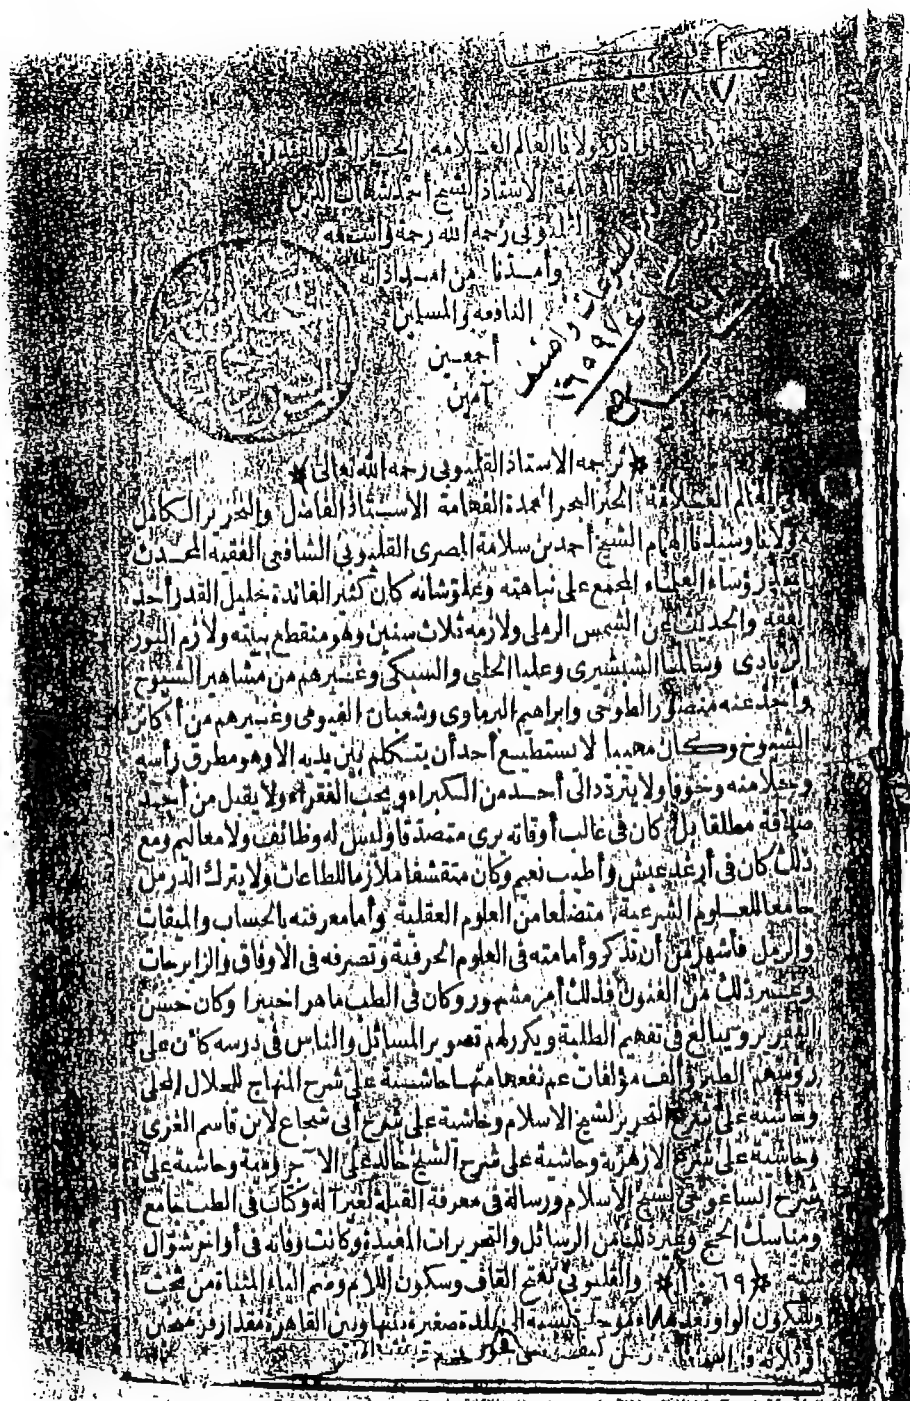 نوادر مولانا العالم العلامة الحبر البحر
الفهامة الأستاذ الشيخ أحمد شهاب الدين
القليوبي رحمه الله رحمة واسعة
وأمدنا من امداداته
النافعة والمسلمين
أجمعين
آمين
* ترجمه الاستاذ القليوبى رحمه الله تعالى *
العالم العلامة الحبر البحر العمدة الفهامة الاستاذ الفاضل والنحرير الكامل
مولانا وسيدنا الهمام الشيخ أحمد بن سلامة المصرى القليوبى الشافعى الفقيه المحدث
أحد رؤساء العلماء المجمع على نباهته وعلو شانه كان كثير الفائدة جليل القدر أخذ
الفقه والحديث عن الشمس الرملى ولازمه ثلاث سنين وهو منقطع ببيته ولازم النور
الزيادى وسالما الشبشيرى وعليا الحلبى والسبكى وغيرهم من مشاهير الشيوخ
وأخذ عنه منصور الطوخى وابراهيم البرماوى وشعبان الفيومى وغيرهم من أكابر
الشيوخ وكان مهيبا لا يستطيع أحد أن يتكلم بين يديه الا وهو مطرق رأسه
وجلا منه وخوفا ولا يتردد الى أحد من الكبراء ويحب الفقراء ولا يقبل من أحد
صدقة مطلقا بل كان فى غالب أوقاته يرى متصدقا وليس له وظائف ولا معاليم ومع
ذلك كان فى أرغد عيش وأطيب نعيم وكان متقشفا ملازما للطاعات ولا يترك الدرس
جامعا للعلوم الشرعية متضلعا من العلوم العقلية وأما معرفته بالحساب والميقات
والرمل فأشهر من أن تذكر وأما مته فى العلوم الحرفية وتصرفه فى الاوفاق والزايرجات
وغير ذلك من الفنون فذلك أمر مشهور وكان فى الطب ماهرا خبيرا وكان حسن
التقرير ويبالغ فى تفهيم الطلبة ويكرر لهم تصوير المسائل والناس فى درسه كأن على
رؤسهم الطير وألف مؤلفات عم نفعها منها حاشية على شرح المنهاج للجلال المحلى
وحاشية على شرح التحرير لشيخ الاسلام وحاشية على شرح أبى شجاع لابن قاسم الغزى
وحاشية على شرح الازهرية وحاشية على شرح الشيخ خالد على الآجرومية وحاشية على
شرح ايساغوجى لشيخ الاسلام ورسالة فى معرفة القبلة بغير آلة وكتاب فى الطب جامع
ومناسك الحج وغير ذلك من الرسائل والتحريرات المفيدة وكانت وفاته فى أواخر شوال
سنة * ١٠٦٩ * والقليوبى بفتح القاف وسكون اللام وضم الياء المثناة من تحت
وسكون الواو بعدها باء موحدة نسبة الى بلدة صغيرة بينها وبين القاهرة مقدار فرسخين
أو ثلاثة